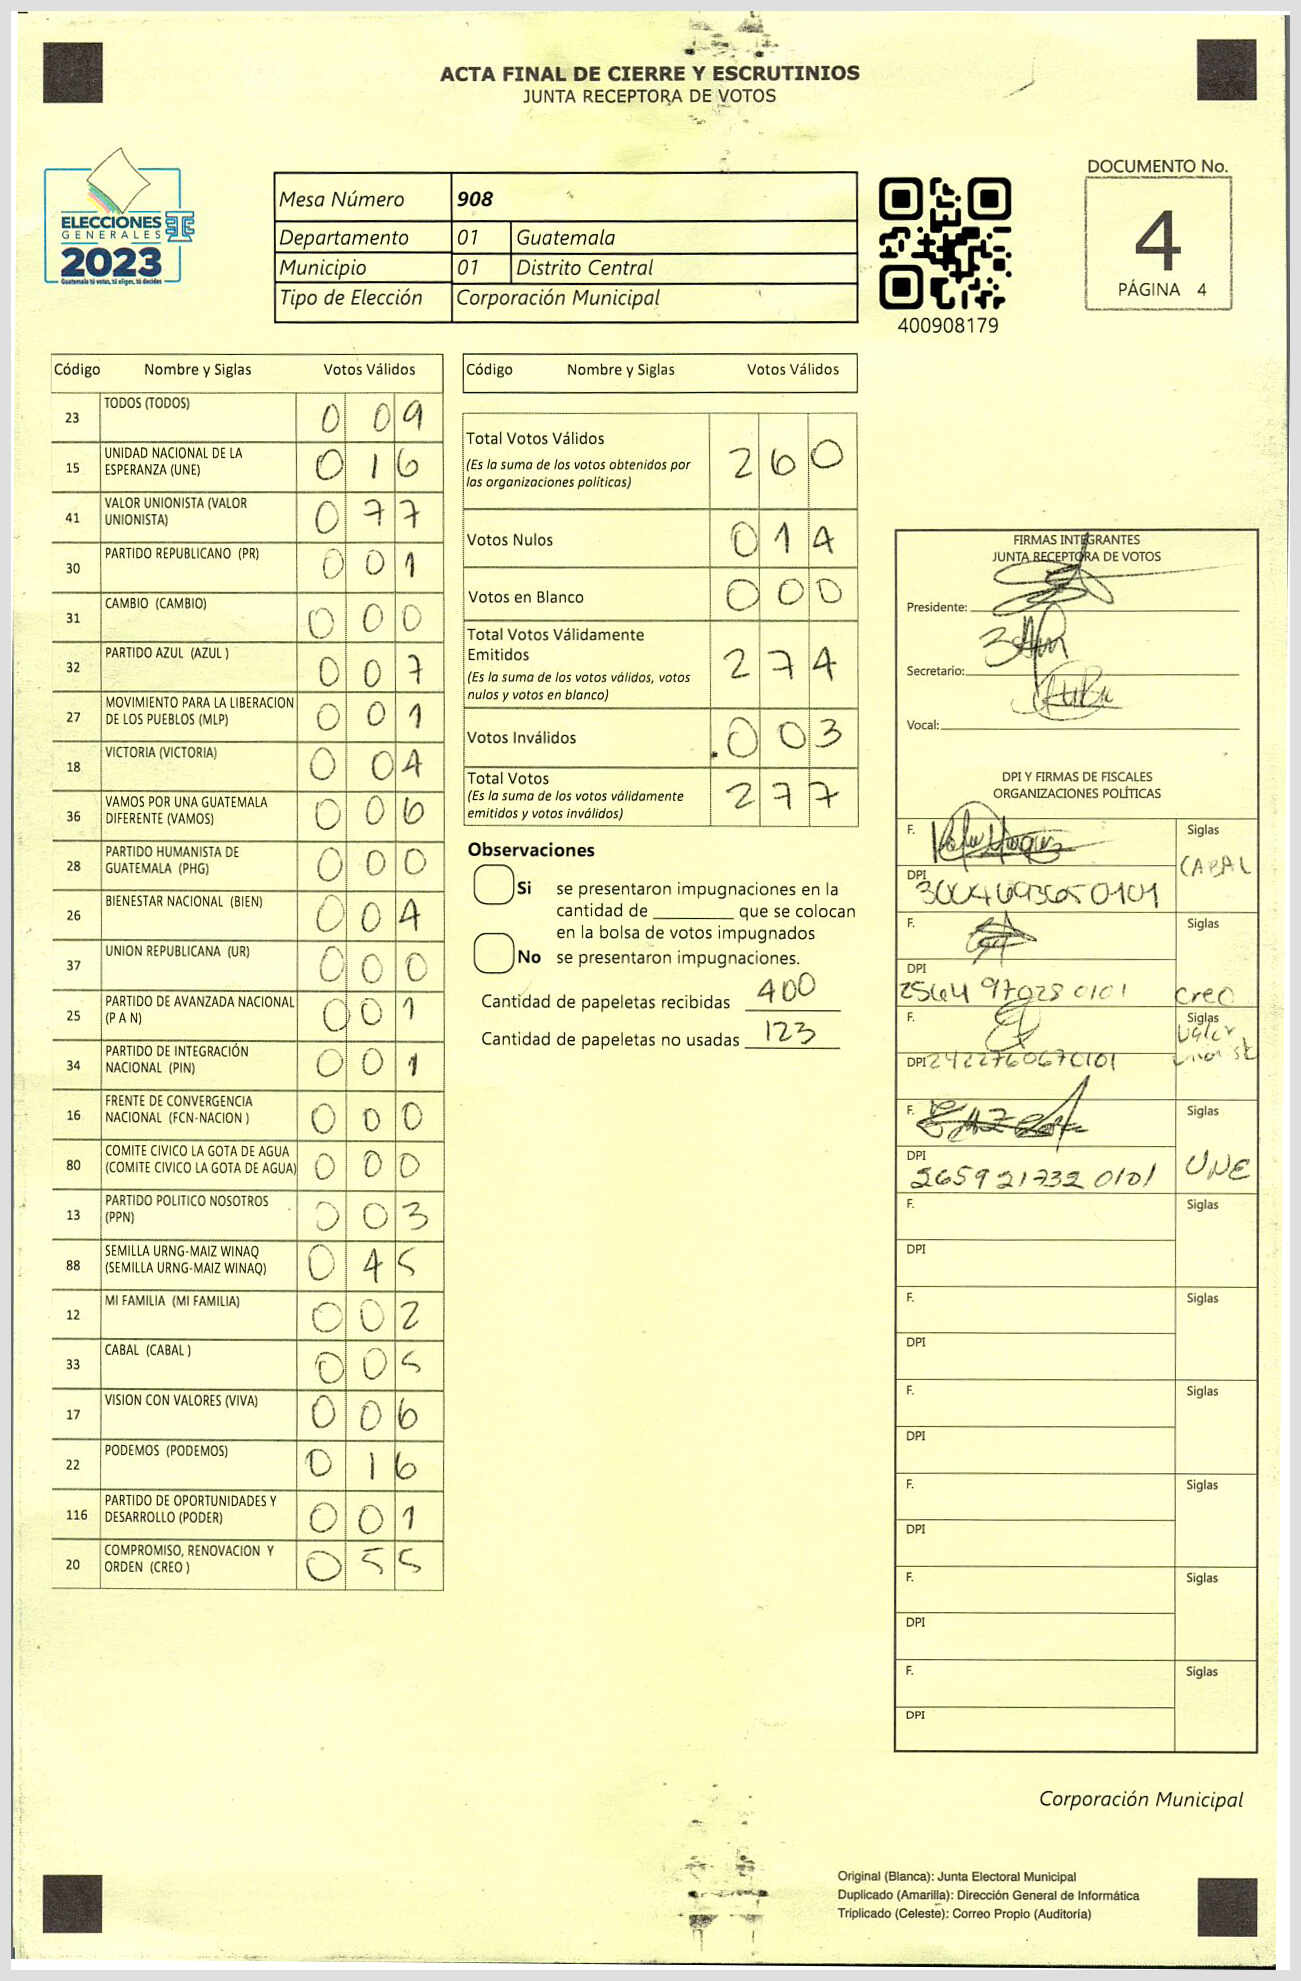 ACTA FINAL DE CIERRE Y ESCRUTINIOS
JUNTA RECEPTORA DE VOTOS
ELECCIONES
GENERALES
2023
Guatemala tú votas, tú eliges, tú decides
Mesa Número 908
Departamento 01 Guatemala
Municipio 01 Distrito Central
Tipo de Elección Corporación Municipal
400908179
DOCUMENTO No.
4
PÁGINA 4
Código Nombre y Siglas Votos Válidos
23 TODOS (TODOS) 0 0 9
15 UNIDAD NACIONAL DE LA ESPERANZA (UNE) 0 1 6
41 VALOR UNIONISTA (VALOR UNIONISTA) 0 7 7
30 PARTIDO REPUBLICANO (PR) 0 0 1
31 CAMBIO (CAMBIO) 0 0 0
32 PARTIDO AZUL (AZUL ) 0 0 7
27 MOVIMIENTO PARA LA LIBERACION DE LOS PUEBLOS (MLP) 0 0 1
18 VICTORIA (VICTORIA) 0 0 4
36 VAMOS POR UNA GUATEMALA DIFERENTE (VAMOS) 0 0 6
28 PARTIDO HUMANISTA DE GUATEMALA (PHG) 0 0 0
26 BIENESTAR NACIONAL (BIEN) 0 0 4
37 UNION REPUBLICANA (UR) 0 0 0
25 PARTIDO DE AVANZADA NACIONAL (P A N) 0 0 1
34 PARTIDO DE INTEGRACIÓN NACIONAL (PIN) 0 0 1
16 FRENTE DE CONVERGENCIA NACIONAL (FCN-NACION ) 0 0 0
80 COMITE CIVICO LA GOTA DE AGUA (COMITE CIVICO LA GOTA DE AGUA) 0 0 0
13 PARTIDO POLITICO NOSOTROS (PPN) 0 0 3
88 SEMILLA URNG-MAIZ WINAQ (SEMILLA URNG-MAIZ WINAQ) 0 4 5
12 MI FAMILIA (MI FAMILIA) 0 0 2
33 CABAL (CABAL ) 0 0 5
17 VISION CON VALORES (VIVA) 0 0 6
22 PODEMOS (PODEMOS) 0 1 6
116 PARTIDO DE OPORTUNIDADES Y DESARROLLO (PODER) 0 0 1
20 COMPROMISO, RENOVACION Y ORDEN (CREO ) 0 5 5
Código Nombre y Siglas Votos Válidos
Total Votos Válidos 2 6 0
(Es la suma de los votos obtenidos por
las organizaciones políticas)
Votos Nulos 0 1 4
Votos en Blanco 0 0 0
Total Votos Válidamente
Emitidos 2 7 4
(Es la suma de los votos válidos, votos
nulos y votos en blanco)
Votos Inválidos 0 0 3
Total Votos 2 7 7
(Es la suma de los votos válidamente
emitidos y votos inválidos)
Observaciones
Si se presentaron impugnaciones en la
cantidad de ________ que se colocan
en la bolsa de votos impugnados
No se presentaron impugnaciones.
Cantidad de papeletas recibidas 400
Cantidad de papeletas no usadas 123
FIRMAS INTEGRANTES
JUNTA RECEPTORA DE VOTOS
Presidente:
Secretario:
Vocal:
DPI Y FIRMAS DE FISCALES
ORGANIZACIONES POLÍTICAS
F. Siglas
CABAL
DPI
F. Siglas
DPI
2564 97028 0101 Creo
F. Siglas
Valor
DPI 2422760670101
F. Siglas
DPI UNE
2659 21732 0101
F. Siglas
DPI
F. Siglas
DPI
F. Siglas
DPI
F. Siglas
DPI
F. Siglas
DPI
F. Siglas
DPI
Corporación Municipal
Original (Blanca): Junta Electoral Municipal
Duplicado (Amarilla): Dirección General de Informática
Triplicado (Celeste): Correo Propio (Auditoría)